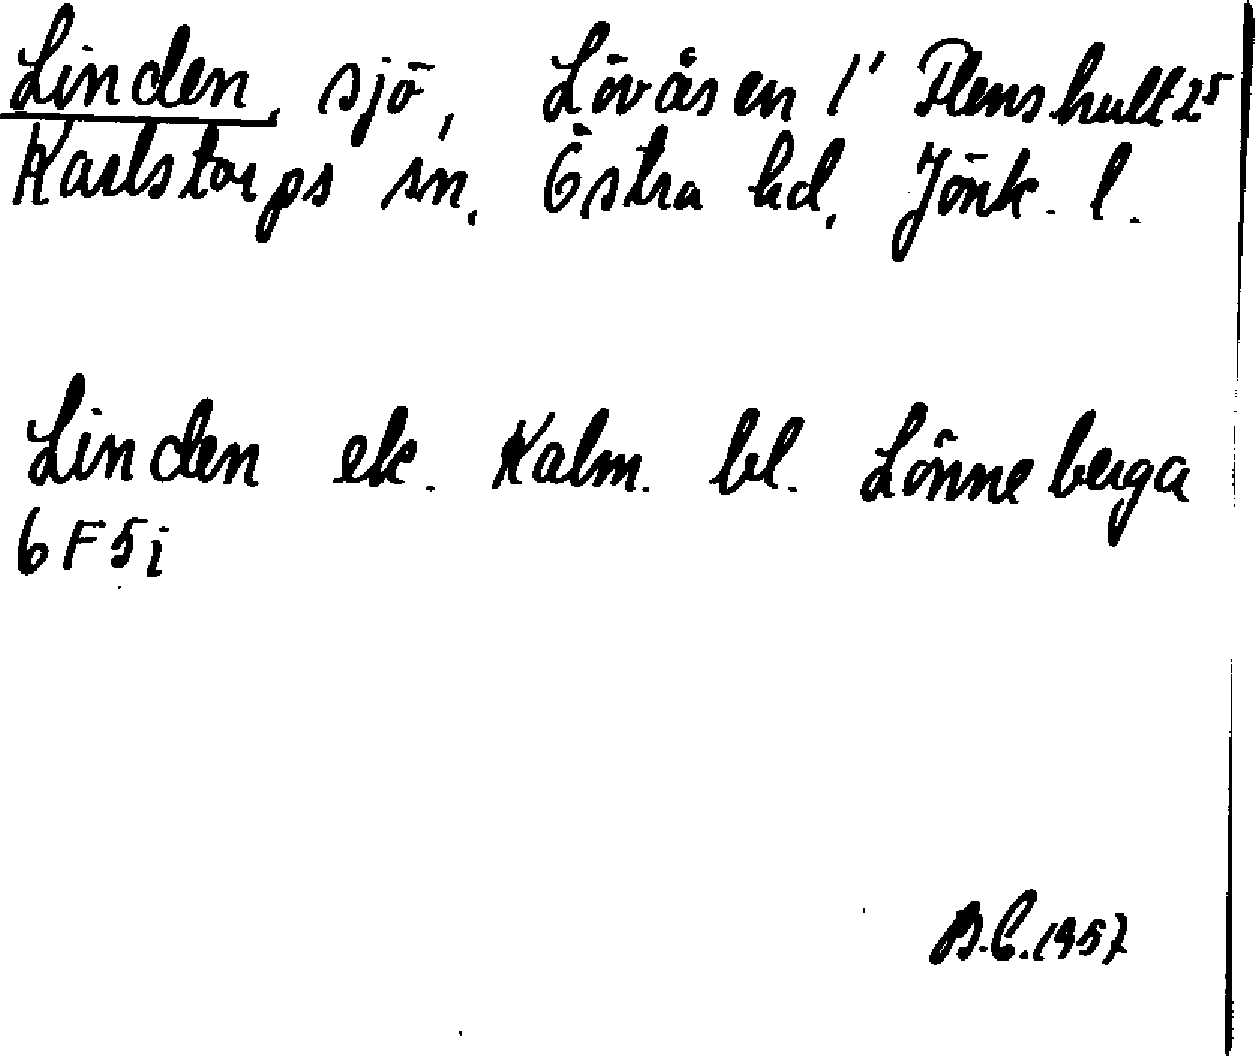 Linden, sjö, Lövåsen 1' Plenshult 2⁵
Karlstorps sn. Östra hd. Jönk. l.
Linden ek. Kalm. bl. Lönneberga
6F5i
B.C. 1957